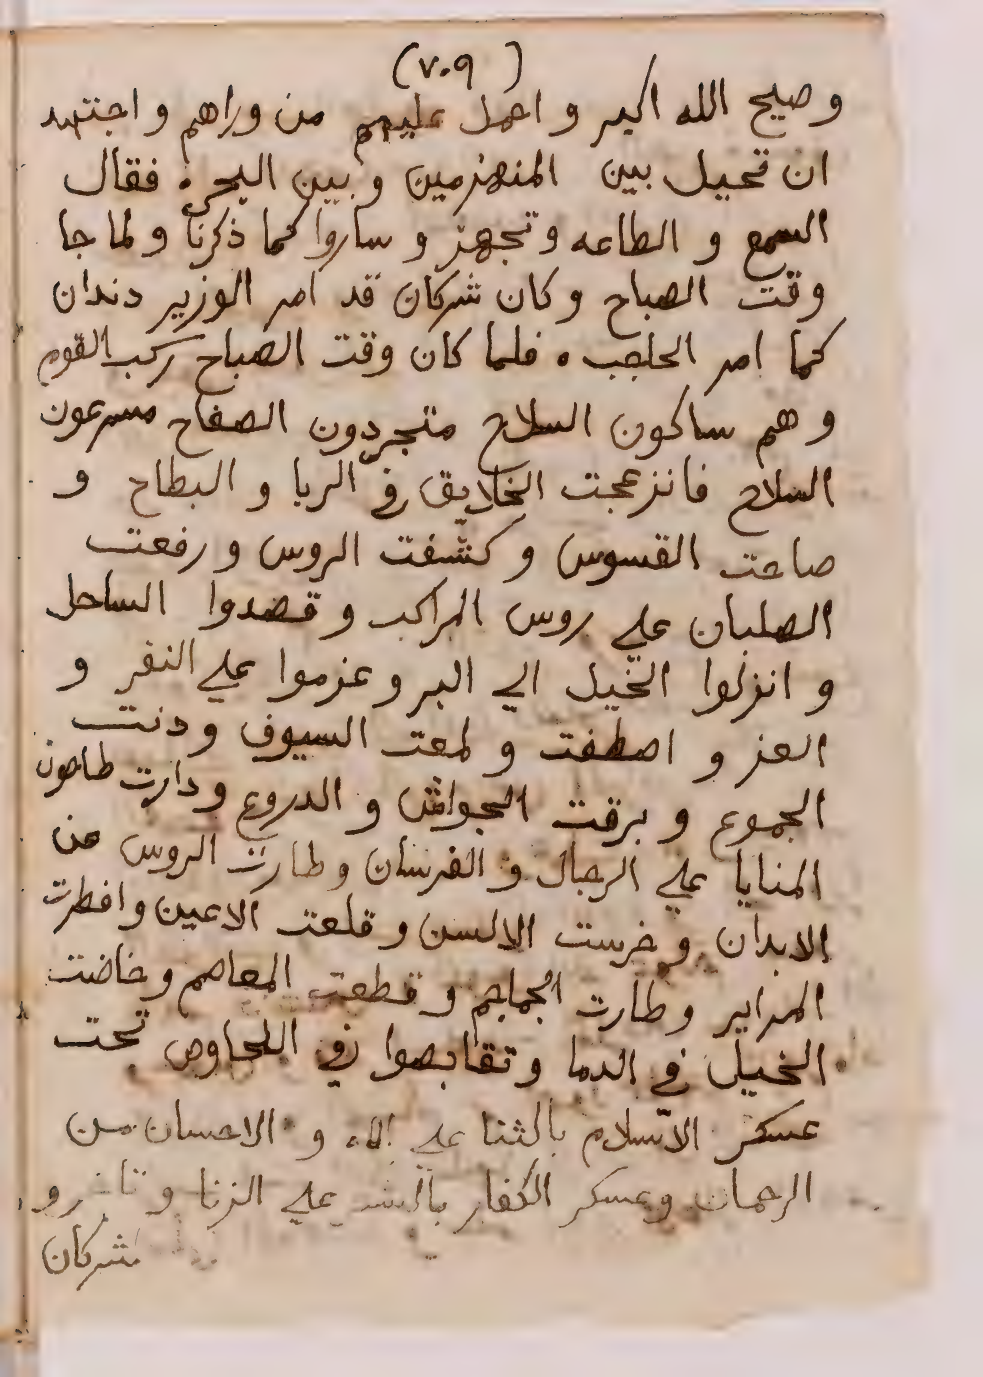 (٧٠٩)
وصيح الله اكبر و احمل عليهم من وراهم و اجتهد
ان تحيل بين المنهزمين و بين البحر ٠ فقال
السمع و الطاعه و تجهز و ساروا كما ذكرنا و لما جا
وقت الصباح و كان شركان قد امر الوزير دندان
كما امر الحاجب ٠ فلما كان وقت الصباح ركب القوم
و هم ساكون السلاح متجردون الصفاح مسرعون
السلاح فانزعجت الخلايق في الربا و البطاح و
صاحت القسوس و كشفت الروس و رفعت
الصلبان علي روس المراكب و قصدوا الساحل
و انزلوا الخيل الي البر و عزموا علي النفر و
العز و اصطفت و لمعت السيوف و دنت
الجموع و برقت الجواش و الدروع و دارت طاحون
المنايا علي الرجال و الفرسان و طارت الروس من
الابدان و خرست الالسن و قلعت الاعين و افطرت
المراير و طارت الجماجم و قطعت المعاصم و خاضت
الخيل في الدما و تقابضوا في اللحاوص تحت
عسكر الاسلام بالثنا علي و الاحسان من
الرحمان وعسكر الكفار علي الزنا و
شركان